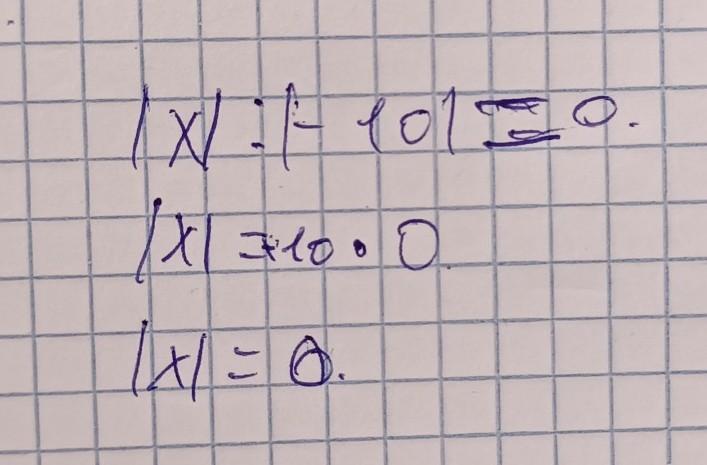 |x| : |-10| = 0.
|x| = 10 • 0
|x| = 0.